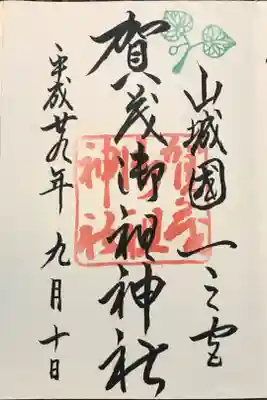 山城國一之宮
賀茂御祖神社
平成廿九年九月十日
賀茂御祖神社